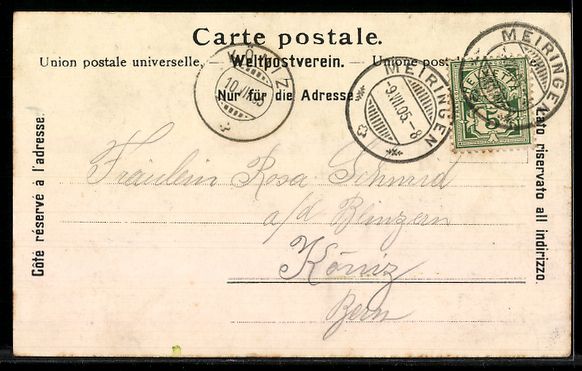 Carte postale.
Union postale universelle. — Weltpostverein. — Unione post
Nur für die Adresse
Côté réservé à l'adresse.
Lato riservato all indirizzo.
KÖNIZ
10.VII.05
MEIRINGEN
-9.VII.05.-8
MEIRINGEN
HELVETIA
5
Fräulein Rosa Schmid
a/d Blinzern
Köniz
Bern